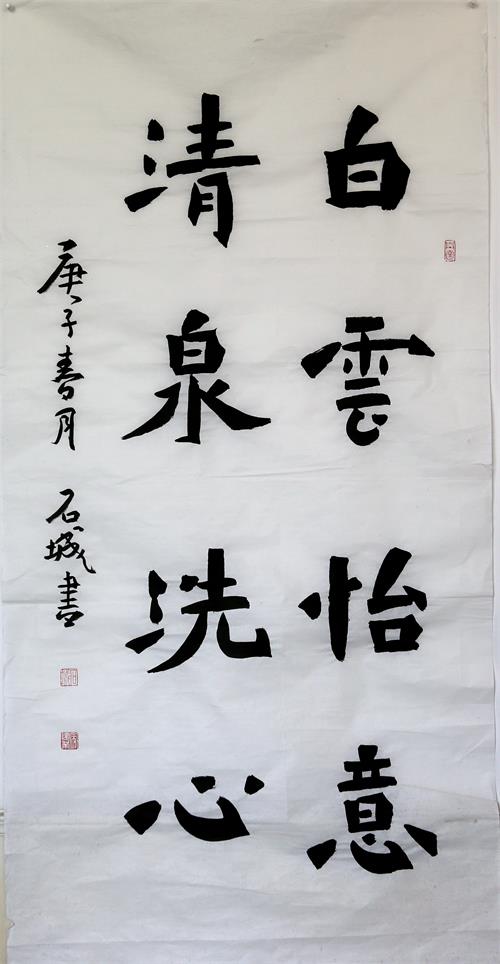 白雲怡意
清泉洗心
庚子春月 石城書